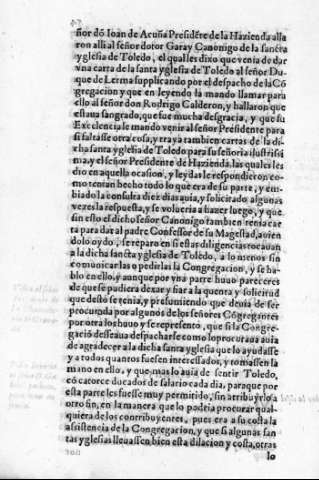 ñor dõ Ioan de Acuña Presidẽte de la Hazienda alla
ron alli al señor dotor Garay Canonigo de la sancta
yglesia de Toledo, el qual les dixo que venia de dar
vna carta de la santa yglesia de Toledo al señor Du-
que de Lerma supplicando por el despacho de la Cõ
gregacion y que en leyendo la mando llamar para
ello al señor don Rodrigo Calderon, y hallaron que
estaua sangrado, que fue mucha desgracia, y que su
Excelencia le mando venir al señor Presidente para
si faltasse otra cosa, y traya tambien cartas de la di-
cha santa yglesia de Toledo para su señoria illustrissi
ma, y el señor Presidente de Hazienda, las quales les
dio en aquella ocasion, y leydas le respondieron co-
mo tenian hecho todo lo que era de su parte, y em-
biado la consulta diez dias auia, y solicitado algunas
vezes la respuesta, y se volueria a hazer luego, y que
sin esto el dicho señor Canonigo tambien tenia car
ta para dar al padre Confessor de su Magestad, auien
dolo oydo, se reparo en si estas diligencias tocauan
a la dicha sancta yglesia de Toledo, a lo menos sin
comunicarlas o pedirlas la Congregacion, y se ha-
blo en ello, y aunque por vna parte huuo pareceres
de que se pudiera dexar y fiar a la quenta y solicitud
que desto se tenia, y presumiendo que deuia de ser
procurada por algunos de los señores Cõgregantes
por otra los huuo y se represento, que si la Congre-
gaciõ desseaua despacharse como lo procuraua auia
de agradecer a la dicha santa yglesia que lo ayudasse
y a todos quantos fuessen interessados, y tomassen la
mano en ello, y que mas lo auia de sentir Toledo,
cõ catorce ducados de salario cada dia, para que por
esta parte les fuesse muy permitido, sin atribuyrlo a
otro fin, en la manera que lo podria procurar qual-
quiera de los contribuyentes, pues era a su costa la
assistencia de la Congregacion, y que si algunas san
tas yglesias lleuassen bien esta dilacion y costa, otras
lo